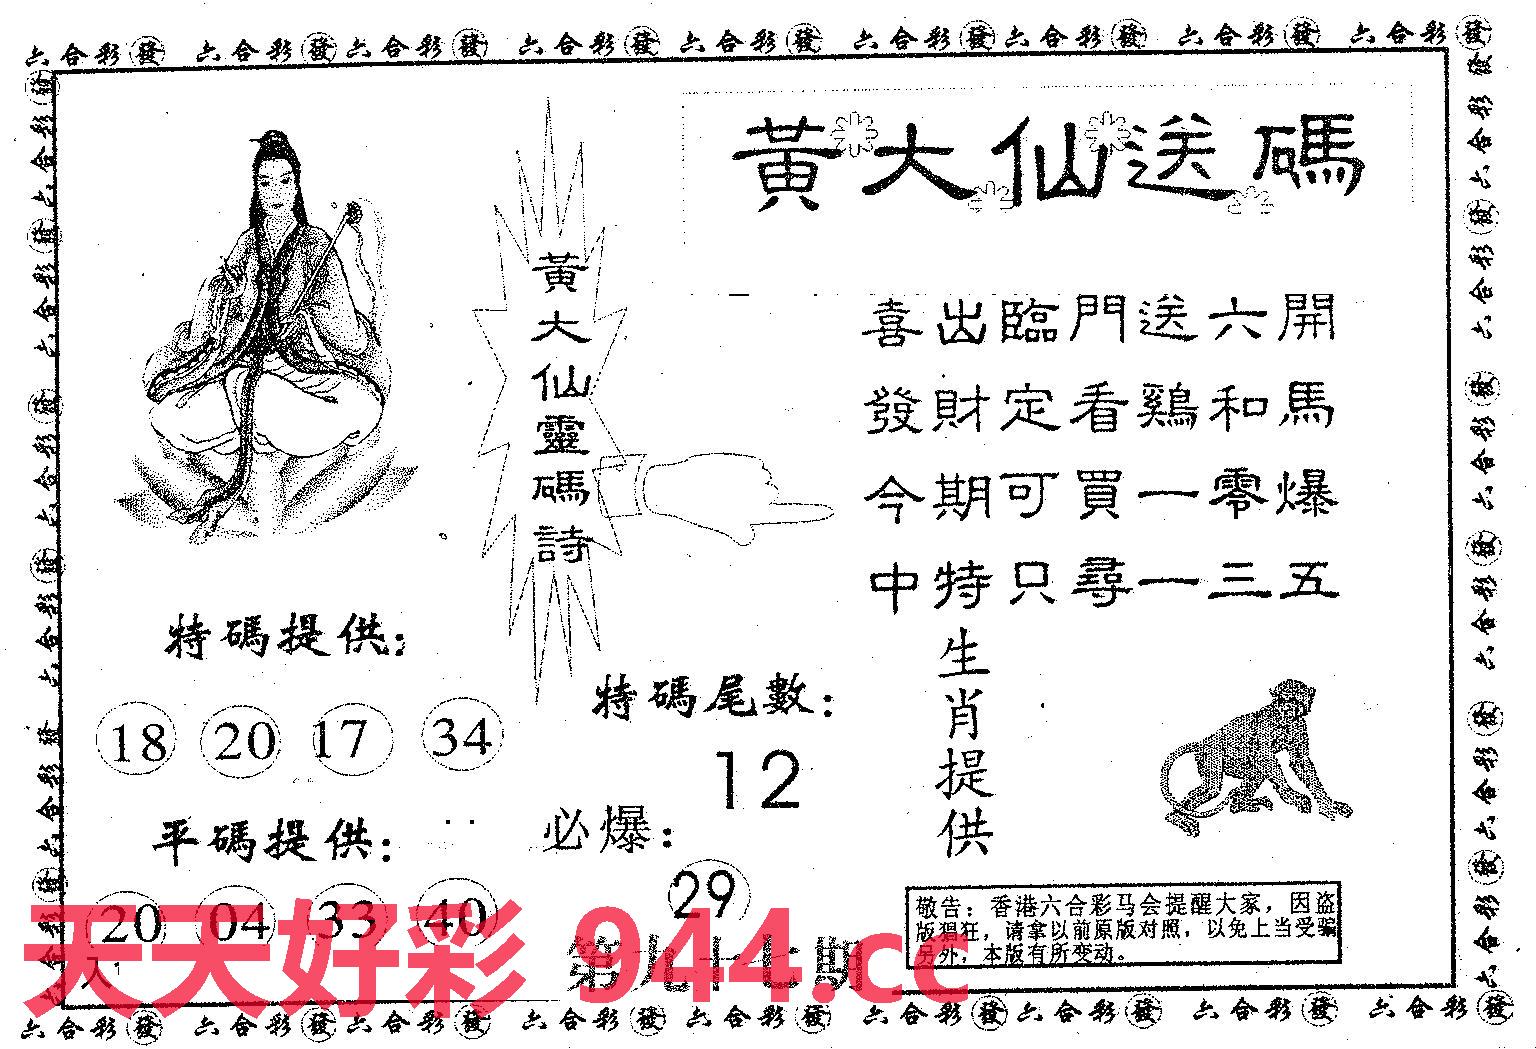 六合彩發 六合彩發 六合彩發 六合彩發 六合彩發 六合彩發 六合彩發 六合彩發 六合彩發
黃大仙送碼
黃大仙靈碼詩
喜出臨門送六開
發財定看鷄和馬
今期可買一零爆
中特只尋一三五
特碼提供：
18 20 17 34
平碼提供：
20 04 33 40
特碼尾數：
12
必爆：
29
第九十七期
生肖提供
敬告：香港六合彩马会提醒大家，因盗
版猖狂，请拿以前原版对照，以免上当受骗
另外，本版有所变动。
天天好彩 944.cc
六合彩發 六合彩發 六合彩發 六合彩發 六合彩發 六合彩發 六合彩發 六合彩發 六合彩發